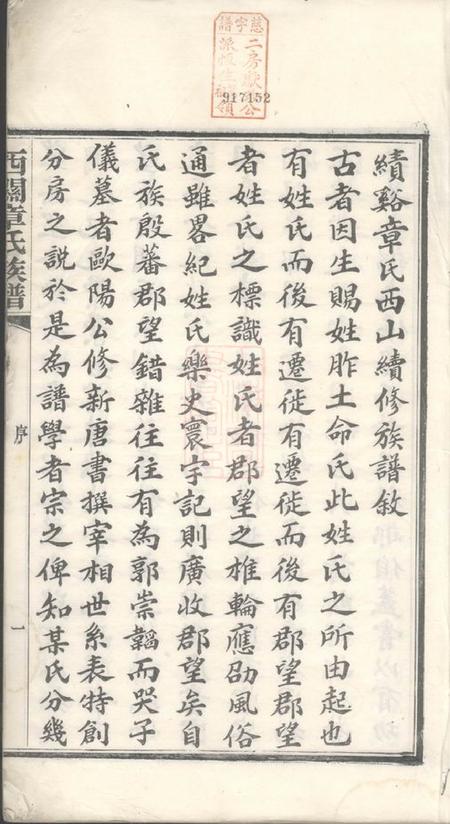 績谿章氏西山續修族譜敘
古者因生賜姓胙土命氏此姓氏之所由起也
有姓氏而後有遷徙有遷徙而後有郡望郡望
者姓氏之標識姓氏者郡望之椎輪應劭風俗
通雖畧紀姓氏樂史寰宇記則廣收郡望矣自
氏族殷蕃郡望錯雜往往有為郭崇韜而哭子
儀墓者歐陽公修新唐書撰宰相世系表特創
分房之説於是為譜學者宗之俾知某氏分幾
西關章氏族譜
序
一
慈字譜
二房
公
派
領
917152